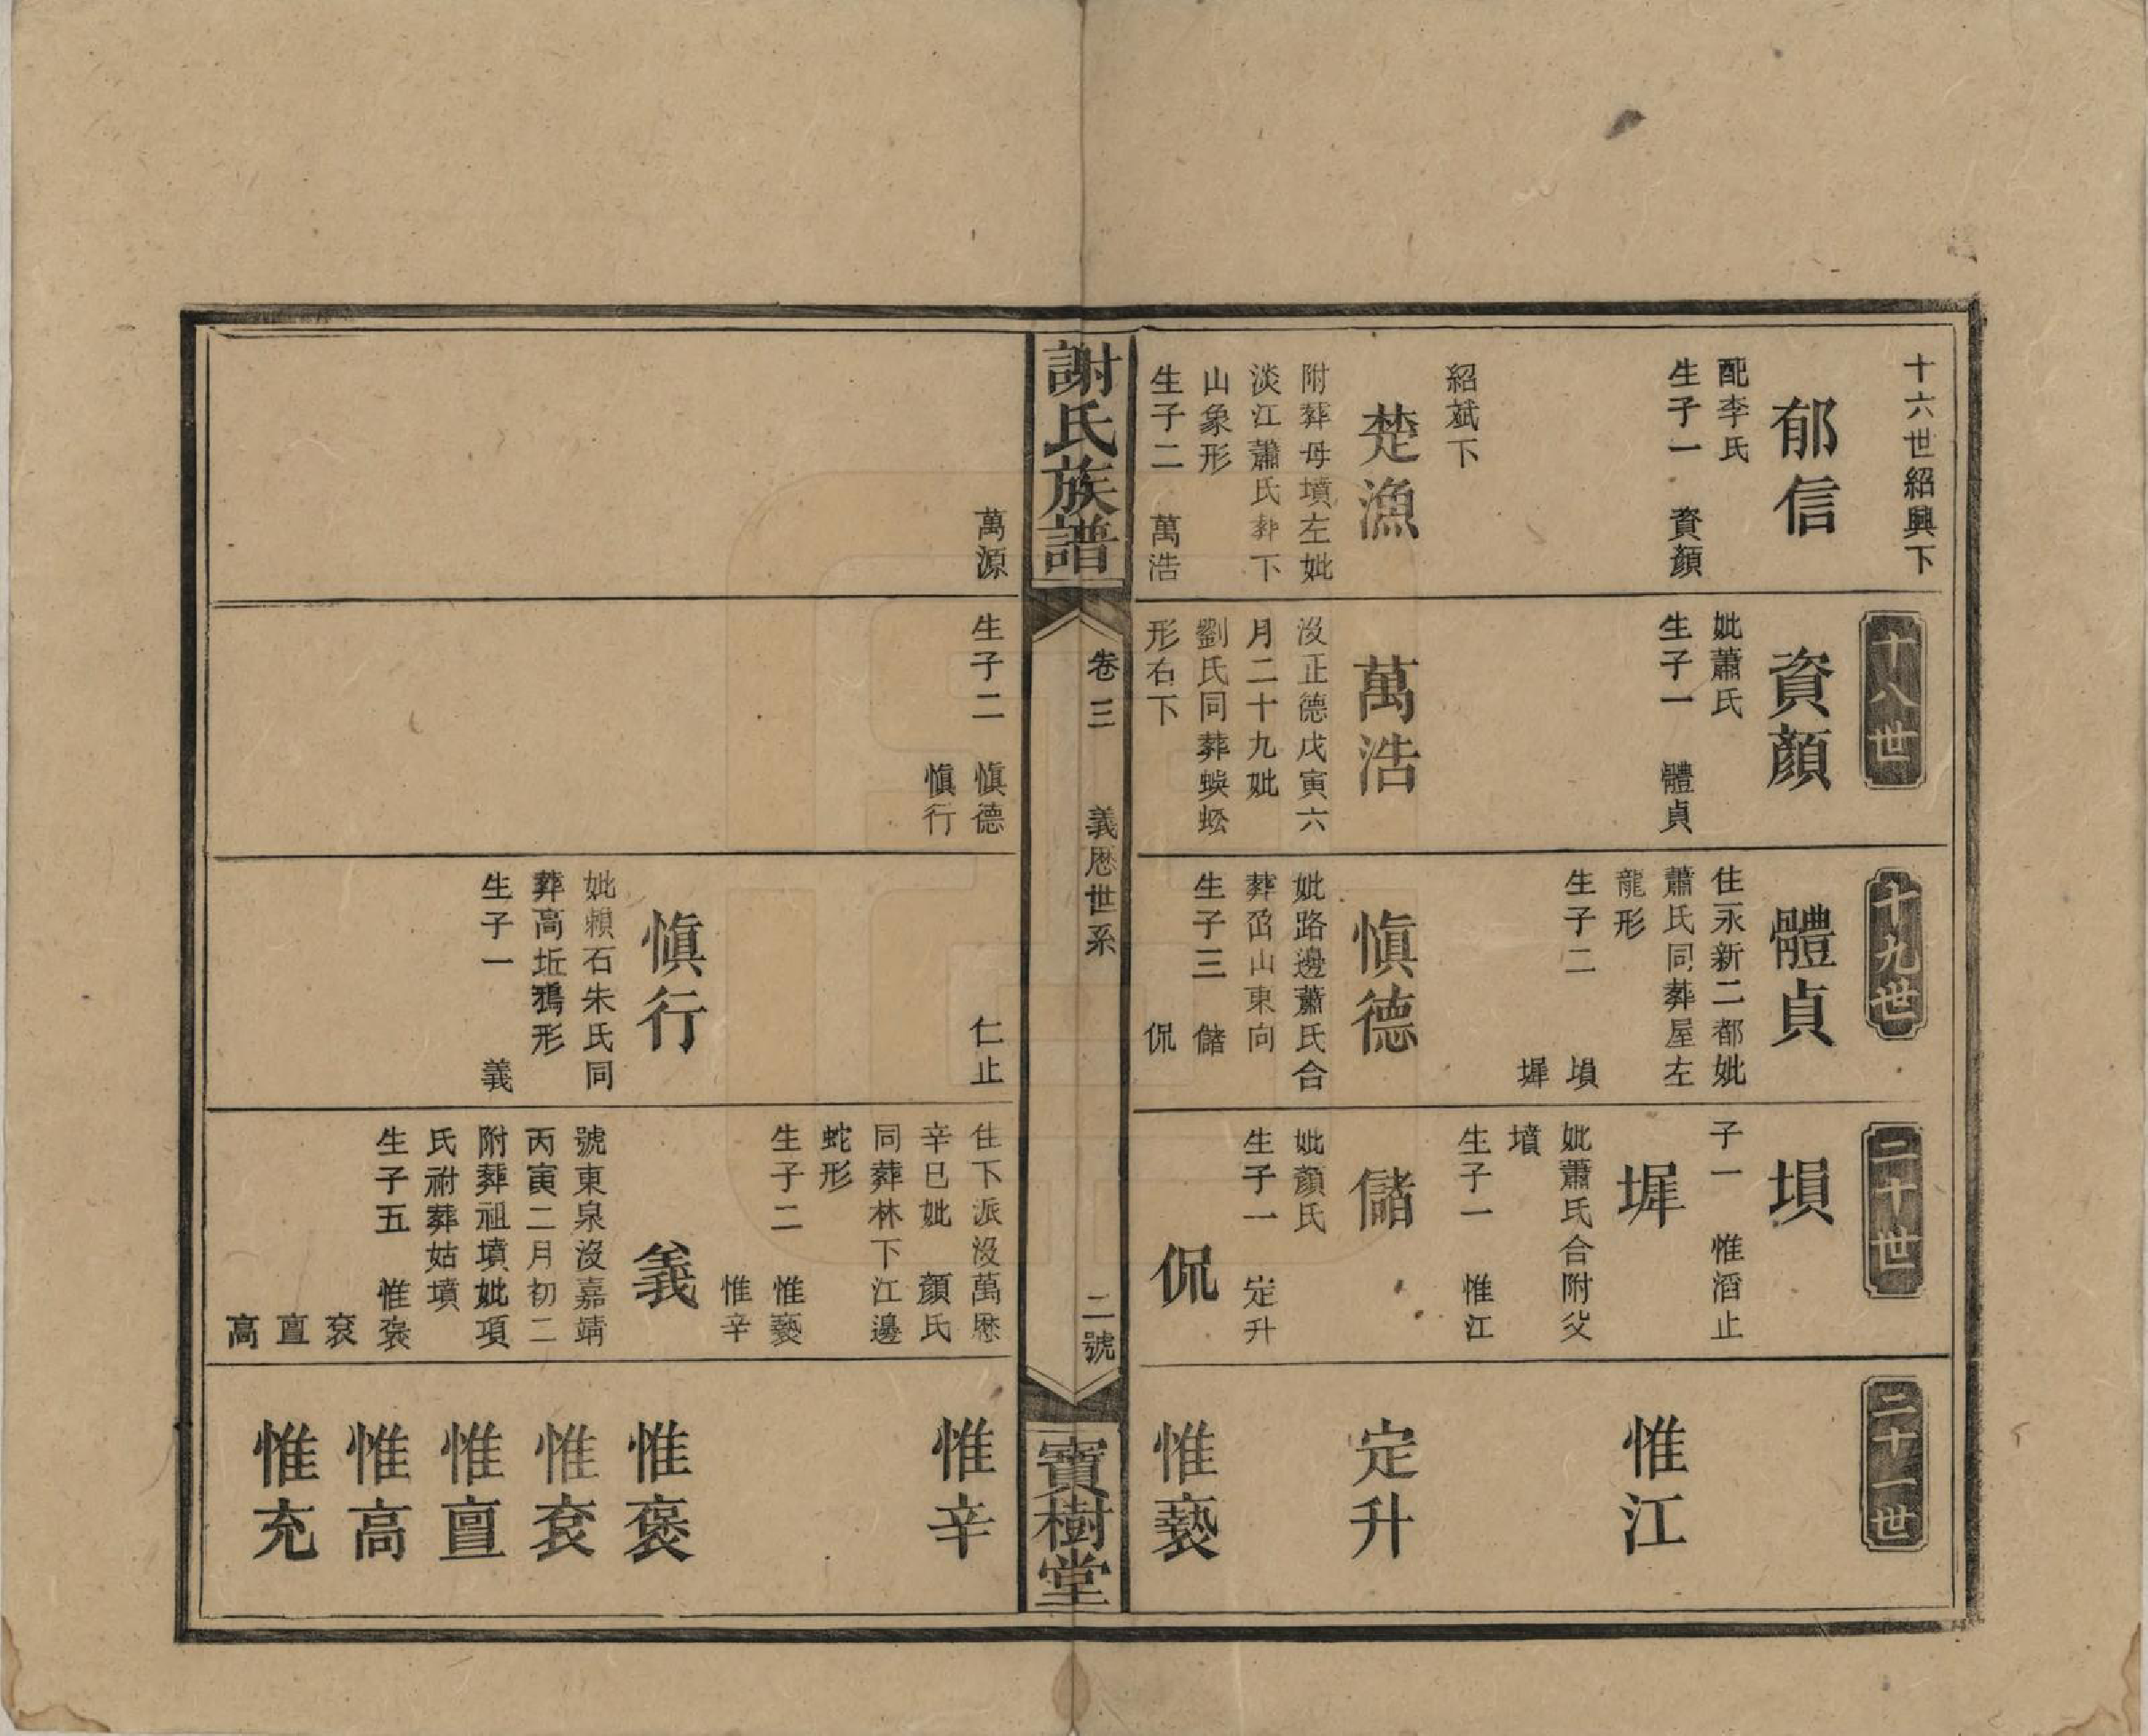 十六世紹興下
郁信
配李氏
生子一　資顏
紹斌下
楚漁
附葬母墳左妣
淡江蕭氏葬下
山象形
生子二　萬浩
十八世
資顏
妣蕭氏
生子一　體貞
萬浩
沒正德戊寅六
月二十九妣
劉氏同葬蜈蚣
形右下
十九世
體貞
住永新二都妣
蕭氏同葬屋左
龍形
生子二　塤
墀
愼德
妣路邊蕭氏合
葬茖山東向
生子三　儲
侃
二十世
塤
子一　惟滔止
墀
妣蕭氏合附父
墳
生子一　惟江
儲
妣顏氏
生子一　定升
侃
二十一世
惟江
定升
惟褻
謝氏族譜
卷三　義厯世系
二號
寶樹堂
萬源
生子二　愼德
愼行
仁止
愼行
妣頼石朱氏同
葬高坵鴉形
生子一　義
住下派沒萬厯
辛巳妣　顏氏
同葬林下江邊
蛇形
生子二　惟褻
惟辛
義
號東泉沒嘉靖
丙寅二月初二
附葬祖墳妣項
氏祔葬姑墳
生子五　惟褒
袞
亶
高
惟辛
惟褒
惟袞
惟亶
惟高
惟充